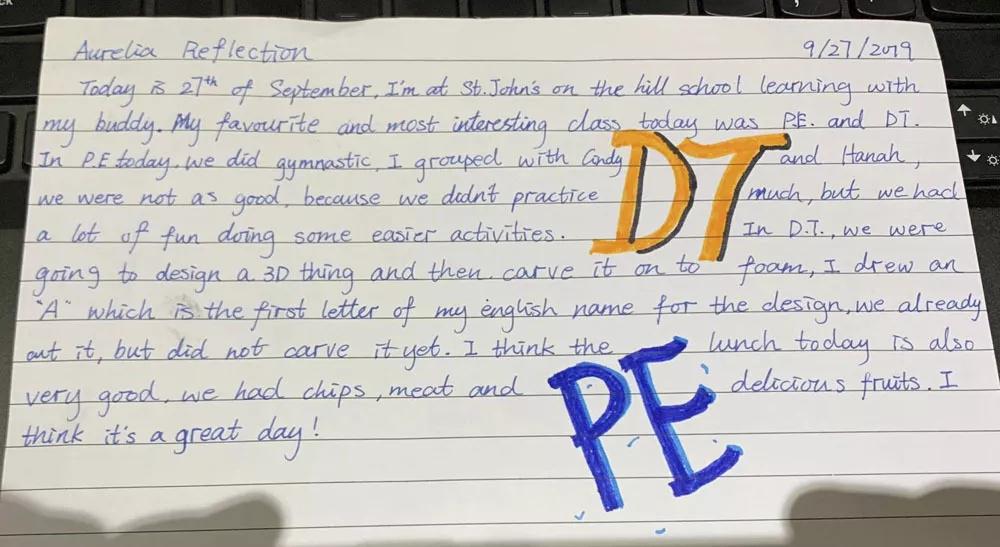 Aurelia Reflection 9/27/2019
Today is 27th of September, I'm at St. John's on the hill school learning with
my buddy. My favourite and most interesting class today was P.E. and DT.
In P.E today, we did gymnastic, I grouped with Cindy and Hanah,
DT
we were not as good, because we didnt practice much, but we had
a lot of fun doing some easier activities. In D.T., we were
going to design a 3D thing and then carve it on to foam, I drew an
"A" which is the first letter of my english name for the design, we already
cut it, but did not carve it yet. I think the lunch today is also
PE
very good, we had chips, meat and delicious fruits. I
think it's a great day!